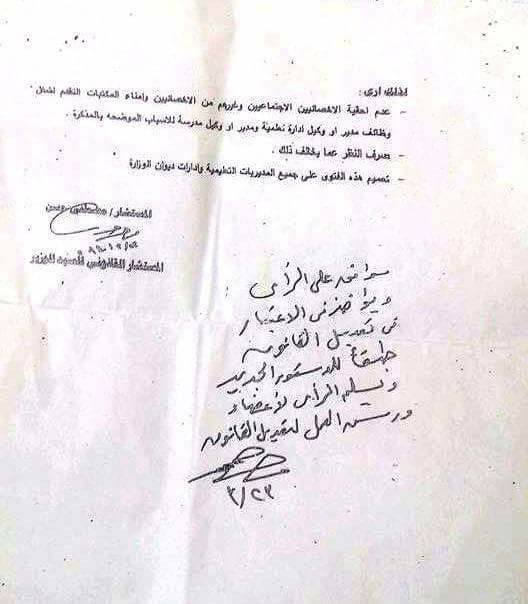 لذلك أرى :
- عدم احقية الاخصائيين الاجتماعيين وغيرهم من الاخصائيين وامناء المكتبات التقدم لشغل
وظائف مدير او وكيل ادارة تعليمية ومدير او وكيل مدرسة للاسباب الموضحه بالمذكرة .
- صرف النظر عما يخالف ذلك .
- تعميم هذه الفتوى على جميع المديريات التعليمية وادارات ديوان الوزارة
المستشار/ مصطفى
المستشار القانونى للسيد الوزير
موافق على الرأى
ويؤخذ فى الاعتبار
فى تعديل القانون
طبقاً للدستور الجديد
ويسلم الرأى لأعضاء
ورش العمل لتعديل القانون
٣/٢٣